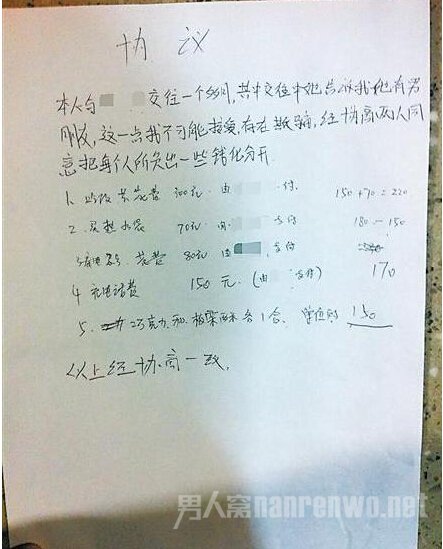 协议
本人与 交往一个多月,其中交往中她告诉我他有男
朋友,这一点我不可能接受,存在欺骗,经协商两人同
意把每个人所负出一些钱化分开
1、 花费 300元 由 付 150+70=220
2、买热水袋 70元 由 支付 180-150
3、 花费 80元 由 支付
4、充电话费 150元 (由 支付) 170
5、巧克力和 各1合、 150
以上经协商一致,
男人窝nanrenwo.net